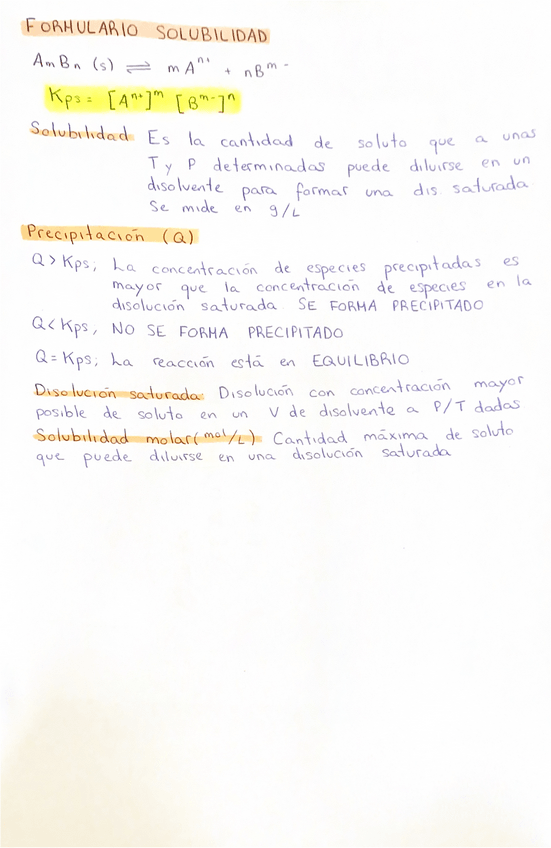 FORMULARIO SOLUBILIDAD
AmBn (s) ⇌ mAⁿ⁺ + nBᵐ⁻
Kps = [Aⁿ⁺]ᵐ [Bᵐ⁻]ⁿ
Solubilidad: Es la cantidad de soluto que a unas
T y P determinadas puede diluirse en un
disolvente para formar una dis. saturada.
Se mide en g/L
Precipitación (Q)
Q > Kps; La concentración de especies precipitadas es
mayor que la concentración de especies en la
disolución saturada. SE FORMA PRECIPITADO
Q < Kps, NO SE FORMA PRECIPITADO
Q = Kps; La reacción está en EQUILIBRIO
Disolución saturada: Disolución con concentración mayor
posible de soluto en un V de disolvente a P/T dadas
Solubilidad molar (mol/L) Cantidad máxima de soluto
que puede diluirse en una disolución saturada